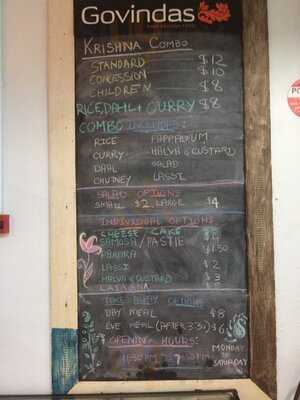 Govindas
KRISHNA COMBO
STANDARD $12
CONCESSION $10
CHILDREN $8
RICE, DAHL + CURRY $8
COMBO INCLUDES:
RICE PAPPADUM
CURRY HALVA & CUSTARD
DAHL SALAD
CHUTNEY LASSI
SALAD OPTIONS
SMALL $2 LARGE $4
INDIVIDUAL OPTIONS
CHEESE CAKE
SAMOSA / PASTIE
PAKORA $1.50
LASSI $2
HALVA & CUSTARD $3
LASAGNA
TAKE AWAY OPTIONS
DAY MEAL $8
EVE MEAL (AFTER 3:30) $6
OPENING HOURS:
MONDAY
SATURDAY